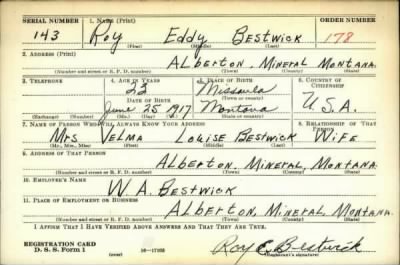 SERIAL NUMBER 1. NAME (Print) ORDER NUMBER
143 Roy Eddy Bestwick 178
(First) (Middle) (Last)
2. ADDRESS (Print)
Alberton, Mineral Montana.
(Number and street or R. F. D. number) (Town) (County) (State)
3. TELEPHONE 4. AGE IN YEARS 5. PLACE OF BIRTH 6. COUNTRY OF CITIZENSHIP
23 Missoula
DATE OF BIRTH (Town or county)
June 25 1917 Montana U.S.A.
(Exchange) (Number) (Mo.) (Day) (Yr.) (State or country)
7. NAME OF PERSON WHO WILL ALWAYS KNOW YOUR ADDRESS 8. RELATIONSHIP OF THAT PERSON
Mrs Velma Louise Bestwick Wife
(Mr., Mrs., Miss) (First) (Middle) (Last)
9. ADDRESS OF THAT PERSON
Alberton, Mineral, Montana.
(Number and street or R. F. D. number) (Town) (County) (State)
10. EMPLOYER'S NAME
W.A. Bestwick
11. PLACE OF EMPLOYMENT OR BUSINESS
Alberton, Mineral, Montana.
(Number and street or R. F. D. number) (Town) (County) (State)
I AFFIRM THAT I HAVE VERIFIED ABOVE ANSWERS AND THAT THEY ARE TRUE.
REGISTRATION CARD
D. S. S. Form 1 (over) Roy E. Bestwick
(Registrant's signature)